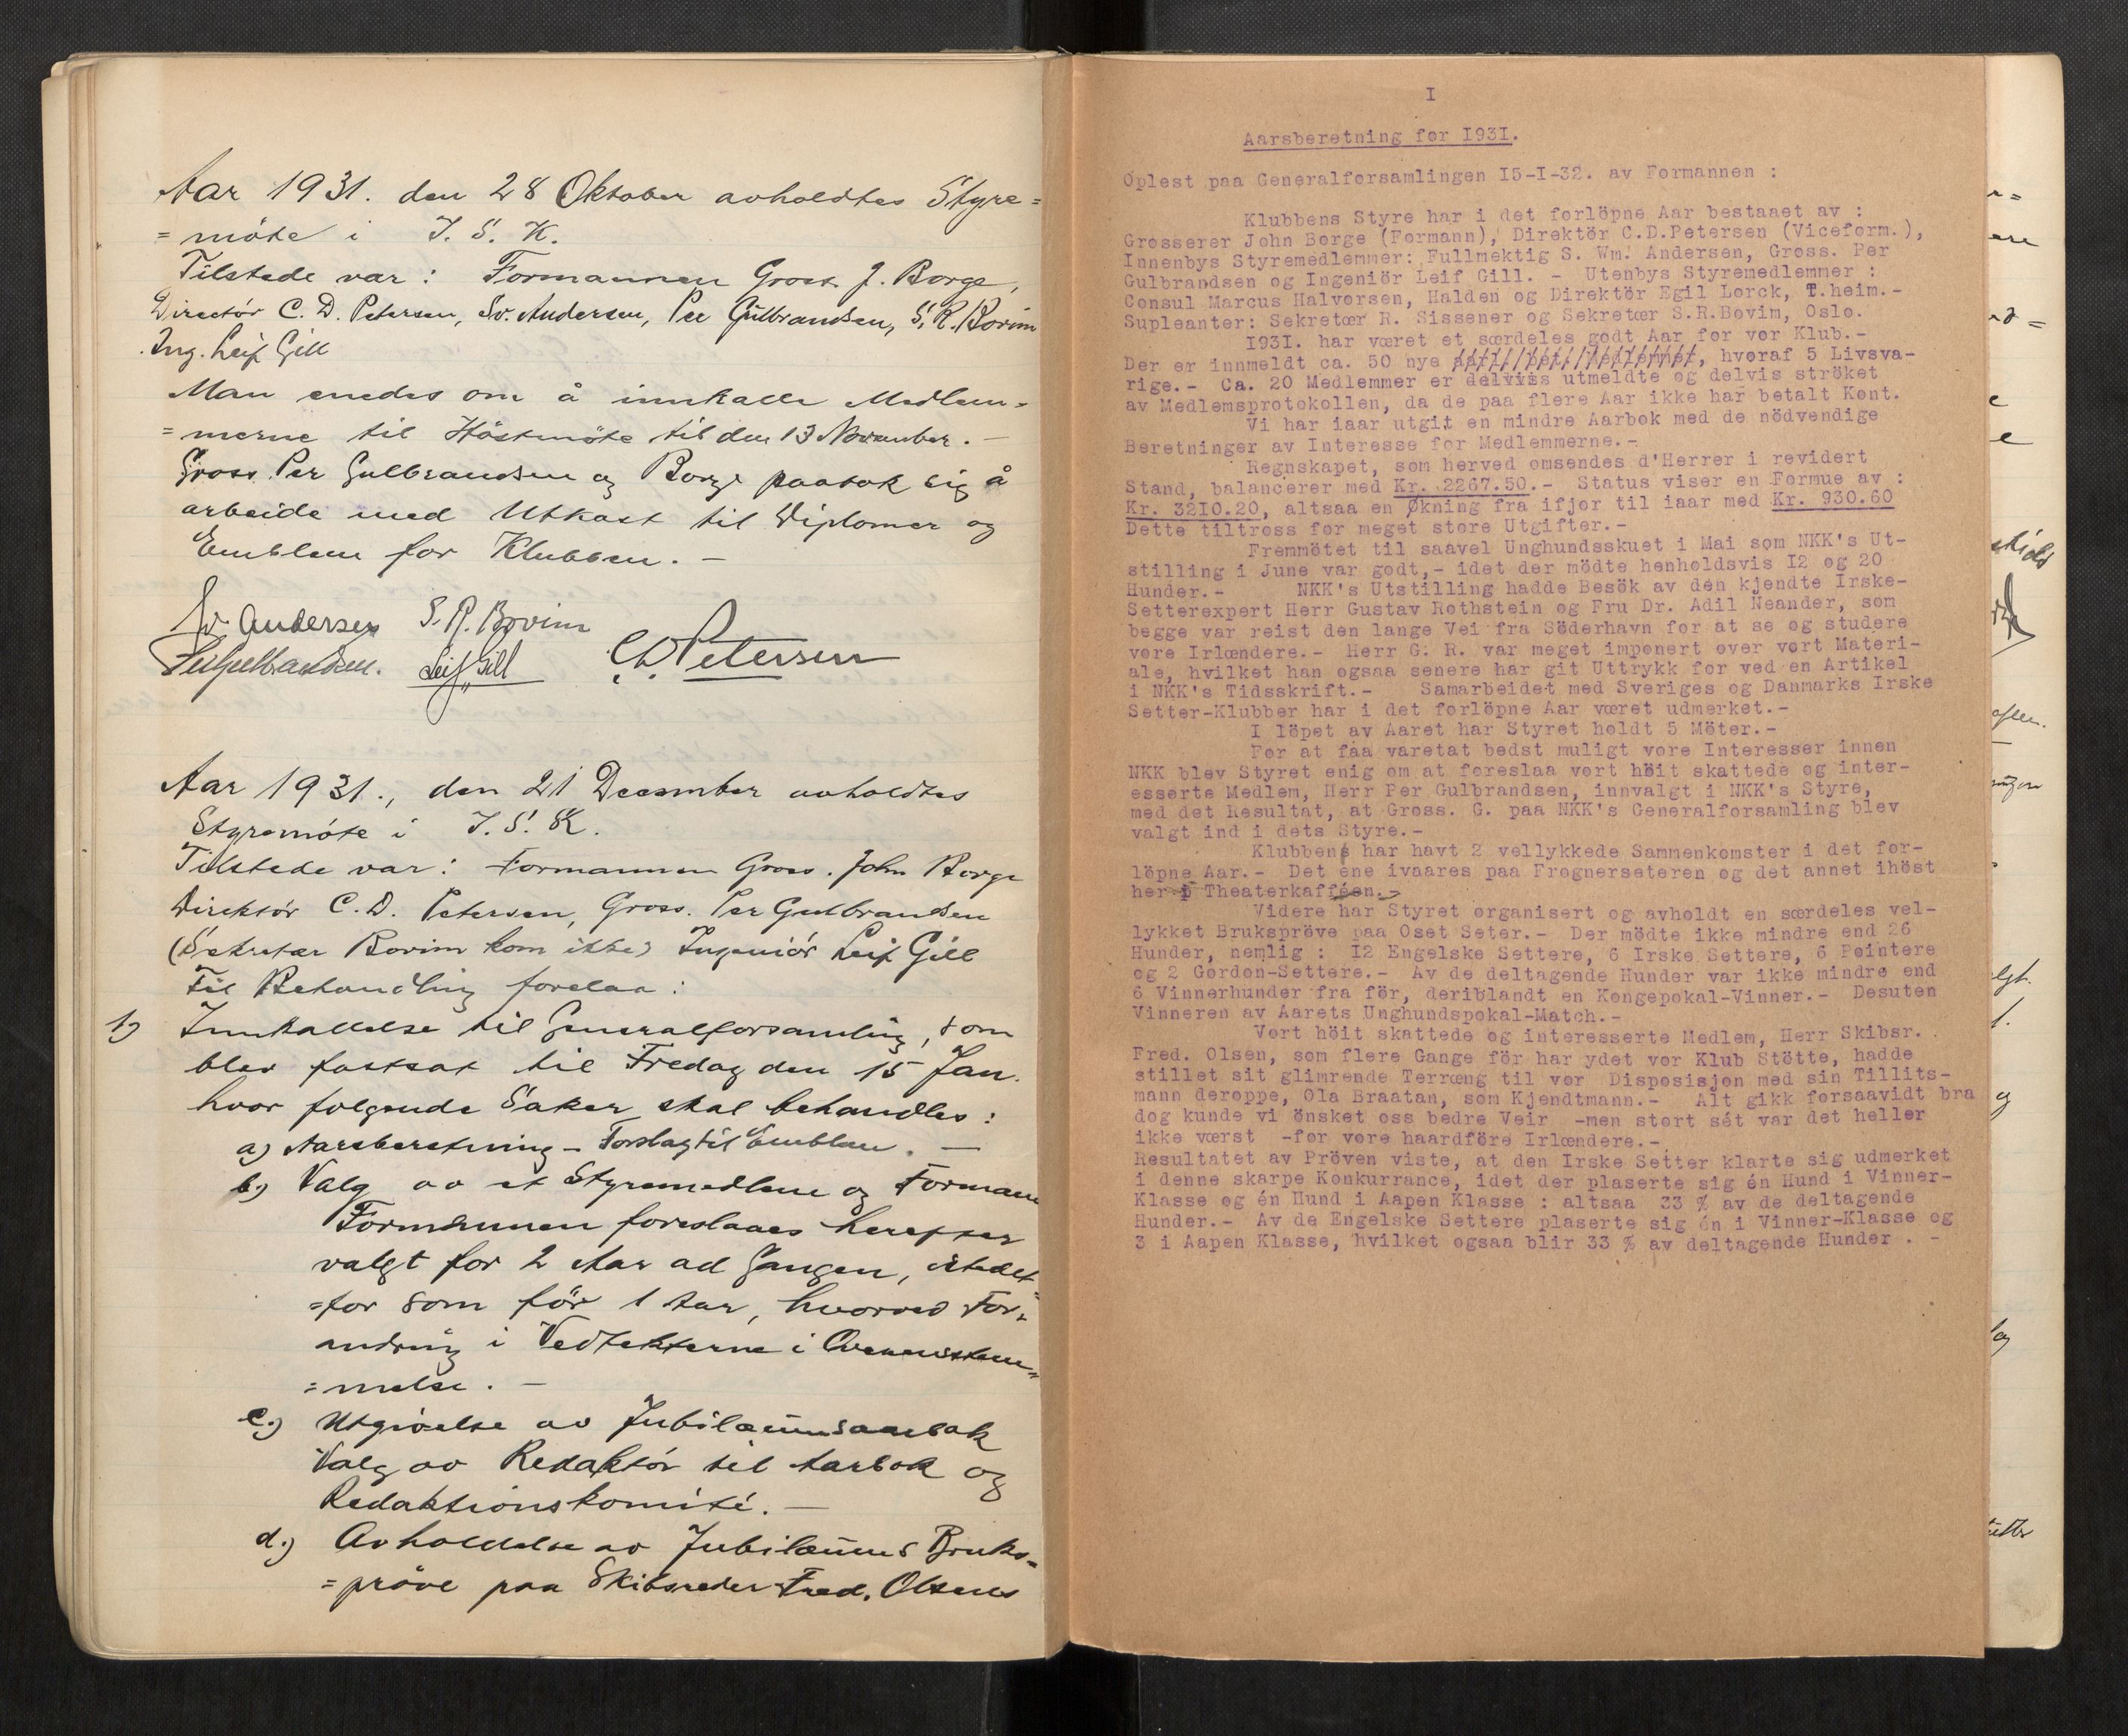 Aar 1931. den 28 Oktober avholdtes Styre=
=möte i I. S. K.
Tilstede var: Formannen Gross. J. Borge,
Direktör C. D. Petersen, Sv. Andersen, Per Gulbrandsen, S. R. Bovim
Ing. Leif Gill
Man enedes om å innkalle Medlem=
=merne til Höstmöte til den 13 November. —
Gross. Per Gulbrandsen og Borge paatok sig å
arbeide med Utkast til Diplomer og
Emblem for Klubben. —
Sv. Andersen S. R. Bovim
Per Gulbrandsen. Leif Gill C. D. Petersen
Aar 1931., den 21 December avholdtes
Styremöte i I. S. K.
Tilstede var: Formannen Gross. John Borge
Direktör C. D. Petersen, Gross. Per Gulbrandsen
(Sekretær Bovim kom ikke) Ingeniör Leif Gill
Til Behandling forelaa:
1) Innkallelse til Generalforsamling, som
blev fastsat til Fredag den 15 Jan.
hvor folgende Saker skal behandles:
a) Aarsberetning – Forslag til Emblem. —
b.) Valg av et Styremedlem og Formann
Formannen foreslaaes herefter
valgt for 2 Aar ad Gangen, istedet=
=for som för 1 Aar, hvorved For=
andring i Vedtekterne i Overensstem=
=melse. —
c.) Utgivelse av Jubilæumsaarbok
Valg av Redaktör til Aarbok og
Redaktionskomité. —
d.) Avholdelse av Jubilæums Bruks=
=pröve paa Skibsreder Fred. Olsens
I
Aarsberetning for I93I.
Oplest paa Generalforsamlingen I5-I-32. av Formannen :
Klubbens Styre har i det forlöpne Aar bestaaet av :
Grosserer John Borge (Formann), Direktör C.D.Petersen (Viceform.),
Innenbys Styremedlemmer: Fullmektig S. Wm. Andersen, Gross. Per
Gulbrandsen og Ingeniör Leif Gill. - Utenbys Styremedlemmer :
Consul Marcus Halvorsen, Halden og Direktör Egil Lorck, T.heim.-
Supleanter: Sekretær R. Sissener og Sekretær S.R.Bovim, Oslo.
I93I. har været et særdeles godt Aar for vor Klub.-
Der er innmeldt ca. 50 nye , hvoraf 5 Livsva-
rige.- Ca. 20 Medlemmer er delvis utmeldte og delvis ströket
av Medlemsprotokollen, da de paa flere Aar ikke har betalt Kont.
Vi har iaar utgit en mindre Aarbok med de nödvendige
Beretninger av Interesse for Medlemmerne.-
Regnskapet, som herved omsendes d'Herrer i revidert
Stand, balancerer med Kr. 2267.50.- Status viser en Formue av :
Kr. 32I0.20, altsaa en Økning fra ifjor til iaar med Kr. 930.60
Dette tiltross for meget store Utgifter.-
Fremmötet til saavel Unghundsskuet i Mai som NKK's Ut-
stilling i June var godt,- idet der mödte henholdsvis I2 og 20
Hunder.- NKK's Utstilling hadde Besök av den kjendte Irske-
Setterexpert Herr Gustav Rothstein og Fru Dr. Adil Neander, som
begge var reist den lange Vei fra Söderhavn for at se og studere
vore Irlændere.- Herr G. R. var meget imponert over vort Materi-
ale, hvilket han ogsaa senere har git Uttrykk for ved en Artikel
i NKK's Tidsskrift.- Samarbeidet med Sveriges og Danmarks Irske
Setter-Klubber har i det forlöpne Aar været udmerket.-
I löpet av Aaret har Styret holdt 5 Möter.-
For at faa varetat bedst muligt vore Interesser innen
NKK blev Styret enig om at foreslaa vort höit skattede og inter-
esserte Medlem, Herr Per Gulbrandsen, innvalgt i NKK's Styre,
med det Resultat, at Gross. G. paa NKK's Generalforsamling blev
valgt ind i dets Styre.-
Klubben har havt 2 vellykkede Sammenkomster i det for-
löpne Aar.- Det ene ivaares paa Frognerseteren og det annet ihöst
her i Theaterkafféen.-
Videre har Styret organisert og avholdt en særdeles vel-
lykket Brukspröve paa Oset Seter.- Der mödte ikke mindre end 26
Hunder, nemlig : I2 Engelske Settere, 6 Irske Settere, 6 Pointere
og 2 Gordon-Settere.- Av de deltagende Hunder var ikke mindre end
6 Vinnerhunder fra för, deriblandt en Kongepokal-Vinner.- Desuten
Vinneren av Aarets Unghundspokal-Match.-
Vort höit skattede og interesserte Medlem, Herr Skibsr.
Fred. Olsen, som flere Gange för har ydet vor Klub Stötte, hadde
stillet sit glimrende Terræng til vor Disposisjon med sin Tillits-
mann deroppe, Ola Braatan, som Kjendtmann.- Alt gikk forsaavidt bra
dog kunde vi önsket oss bedre Veir -men stort sét var det heller
ikke værst -for vore haardföre Irlændere.-
Resultatet av Pröven viste, at den Irske Setter klarte sig udmerket
i denne skarpe Konkurrance, idet der plaserte sig én Hund i Vinner-
Klasse og én Hund i Aapen Klasse : altsaa 33 % av de deltagende
Hunder.- Av de Engelske Settere plaserte sig én i Vinner-Klasse og
3 i Aapen Klasse, hvilket ogsaa blir 33 % av deltagende Hunder . -